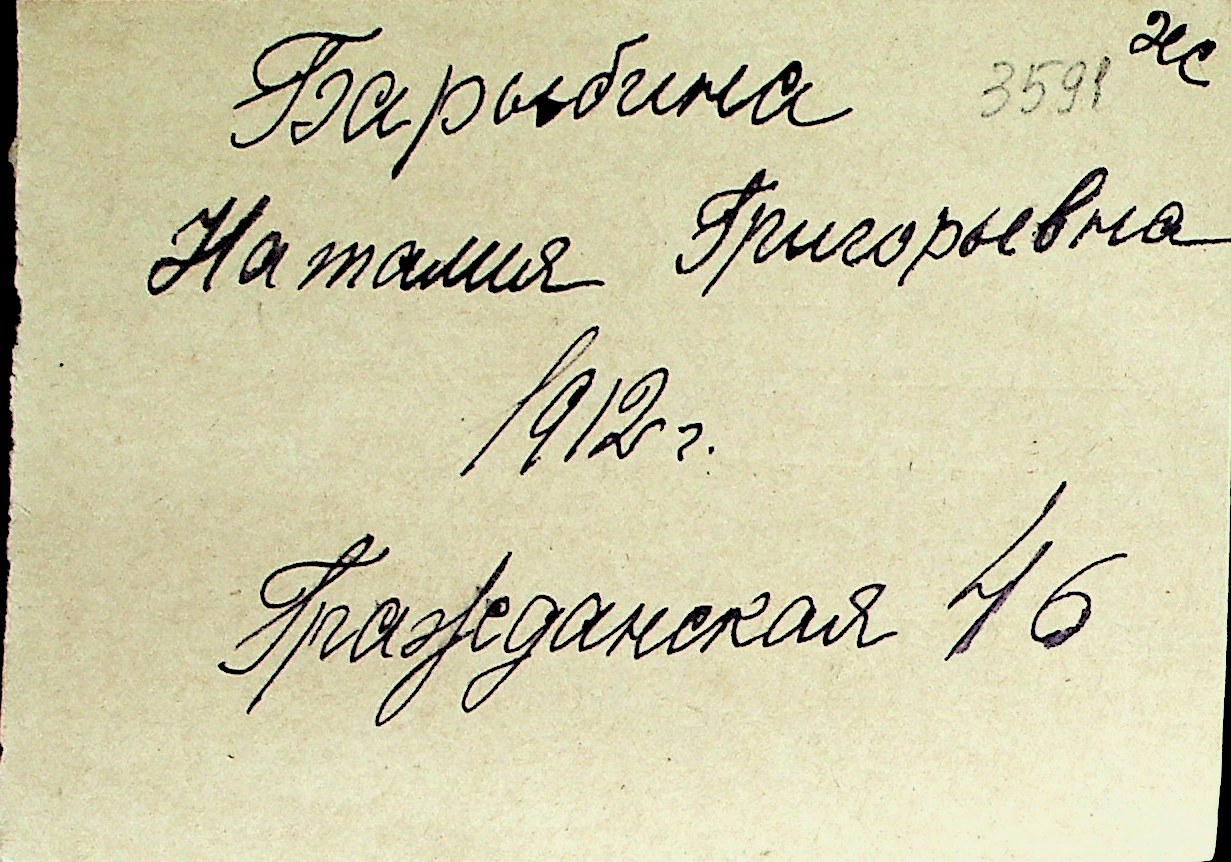 Барыбина 3591 нс
Наталия Григорьевна
1912 г.
Гражданская 46